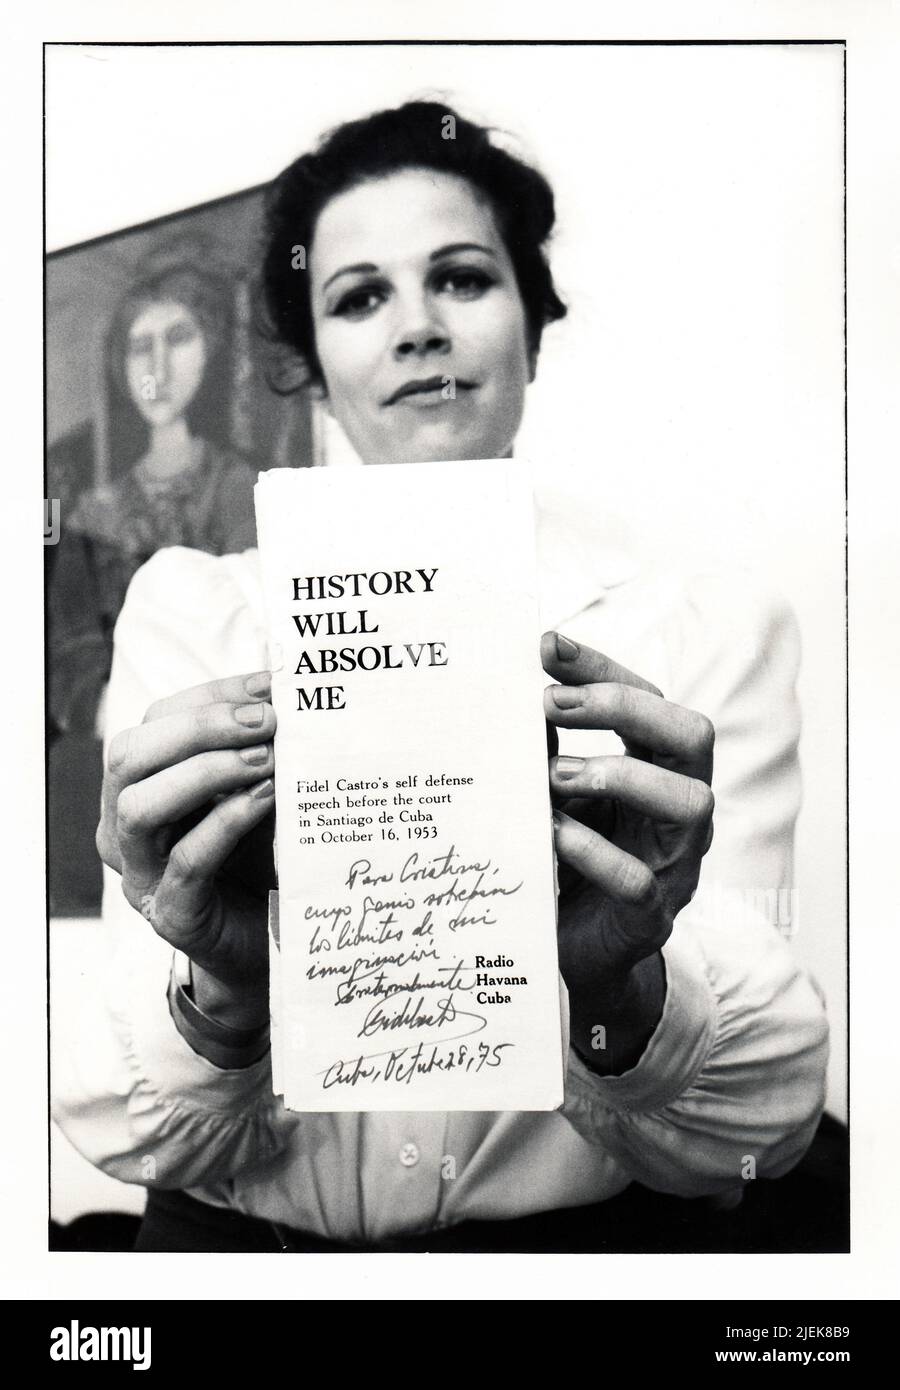 HISTORY
WILL
ABSOLVE
ME
Fidel Castro's self defense
speech before the court
in Santiago de Cuba
on October 16, 1953
Para Cristina,
cuyo genio
los límites de mi
imaginación.
Radio
Havana
Cuba
Fidel Castro
Cuba, Octubre 28, 75
alamy
Image ID: 2JEK8B9
www.alamy.com